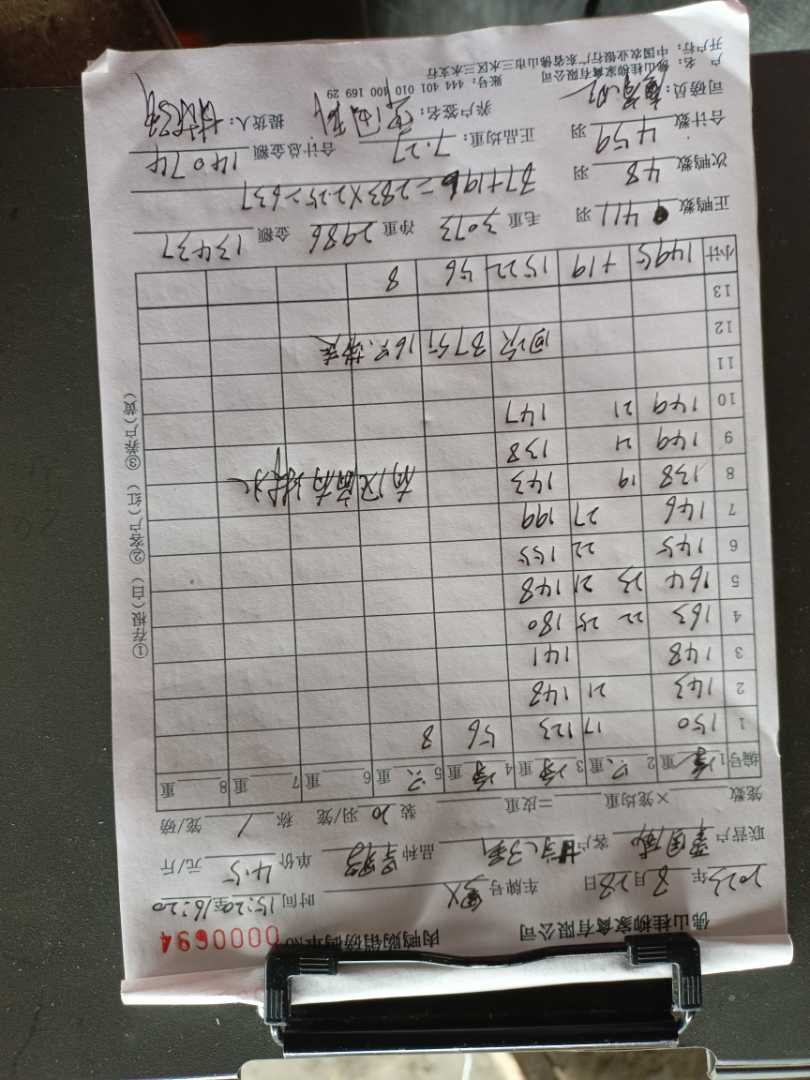 佛山桂柳家禽有限公司 肉鸭购销磅码单No 0000694
2023年8月28日 车牌号 时间15:20至16:20
联营户 客户 品种 单价4.5元/斤
笼数 ×笼均重 =皮重 装20羽/笼 称1笼/磅
编号 1净重 2只重 3净重 4净重 5只重 6重 7重 8重
1 150 17 123 56 8
2 143 21 148
3 148 141
4 163 22 25 180
5 164 23 21 148
6 145 22 155
7 146 27 199
8 138 19 143 前后都有淋水
9 149 21 138
10 149 21 147
11
12 回收87斤16只
13
小计 1495 +19 1522 56 8
正鸭数411羽 毛重3073 净重2986 金额13437
次鸭数48羽 87+196=283×2.25=637
合计数459羽 正品均重:7.27 合计总金额14074
司磅员: 养户签名: 提货人:
户 名:佛山桂柳家禽有限公司 账号:444 401 010 400 169 29
开户行:中国农业银行广东省佛山市三水区三水支行
①存根(白) ②客户(红) ③养户(黄)